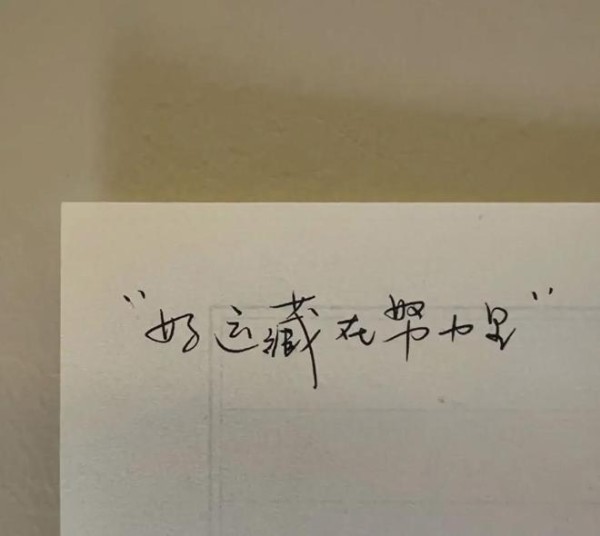 "好运藏在努力里"